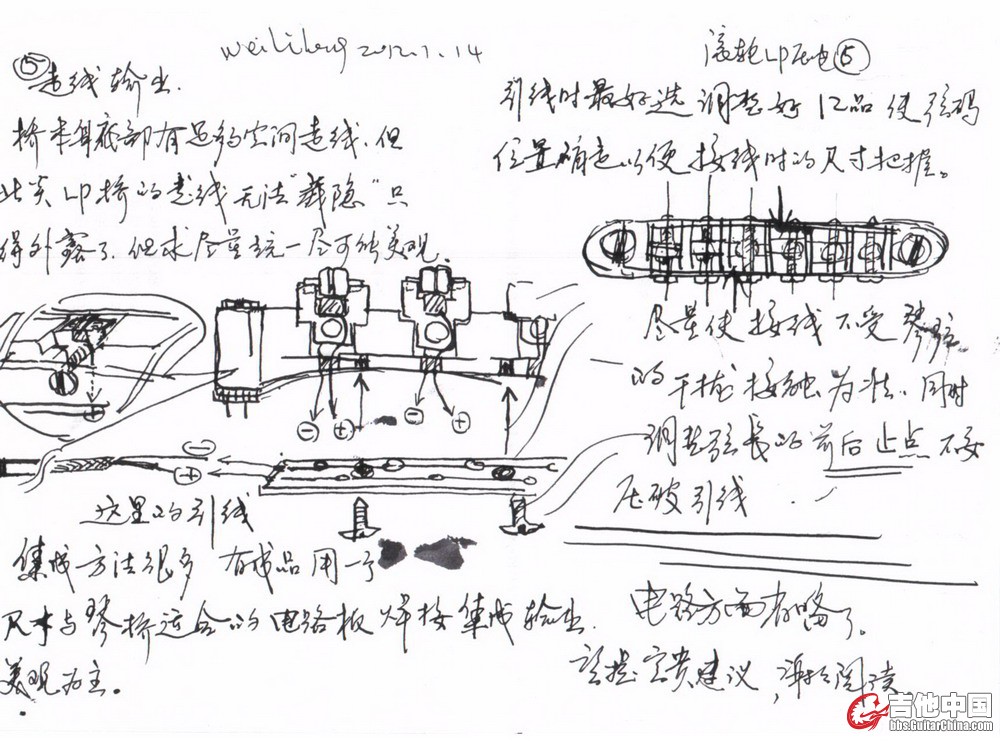 weiliheng 2012.1.14
⑤
走线输出.
桥本身底部有足够空间走线.但
此类LP桥的走线无法"截隐"只
得外露了.但求尽量统一尽可能美观.
⊖ ⊕ ⊖ ⊕
⊖
⊕
这里的引线
集成方法很多 有成品用一个
尺寸与琴桥适合的电路板焊接集成输出.
美观为主.
滚轮LP压电⑤
引线时最好选调整好12品使弦码
位置确定以便接线时的尺寸把握。
尽量使接线不受琴弦
的干扰接触为准.同时
调整弦长的前后止点不要
压破引线.
电路方面存略了.
请提宝贵建议,谢谢阅读.
吉他中国
bbs.GuitarChina.com